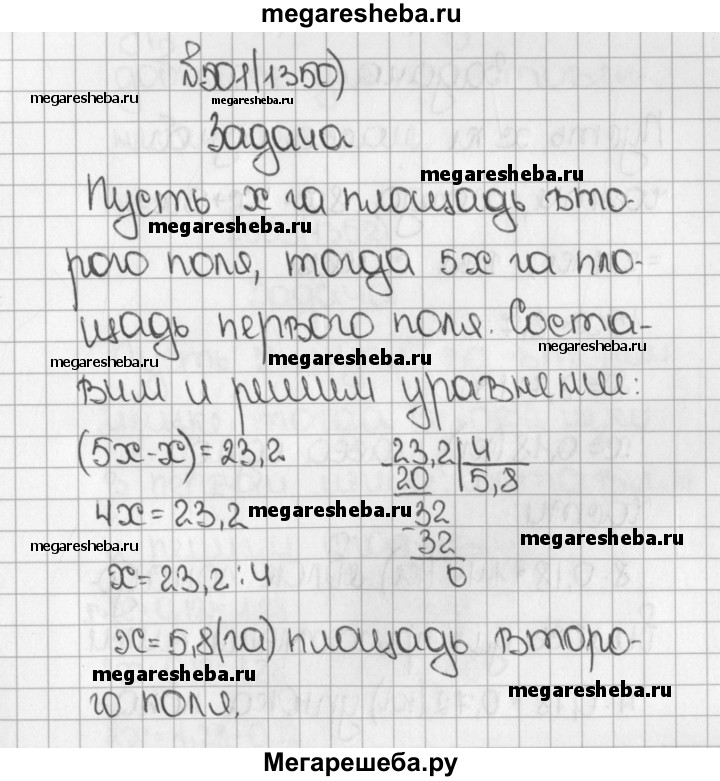 megaresheba.ru
№501(1350)
megaresheba.ru
megaresheba.ru
Задача
megaresheba.ru
Пусть x га площадь вто-
megaresheba.ru
рого поля, тогда 5x га пло-
щадь первого поля. Соста-
megaresheba.ru
megaresheba.ru
megaresheba.ru
вим и решим уравнение:
(5x-x)=23,2
23,2 4
20 5,8
4x=23,2
megaresheba.ru
32
megaresheba.ru
32
megaresheba.ru
x=23,2:4
0
x=5,8(га) площадь второ-
megaresheba.ru
megaresheba.ru
го поля.
Мегарешеба.ру